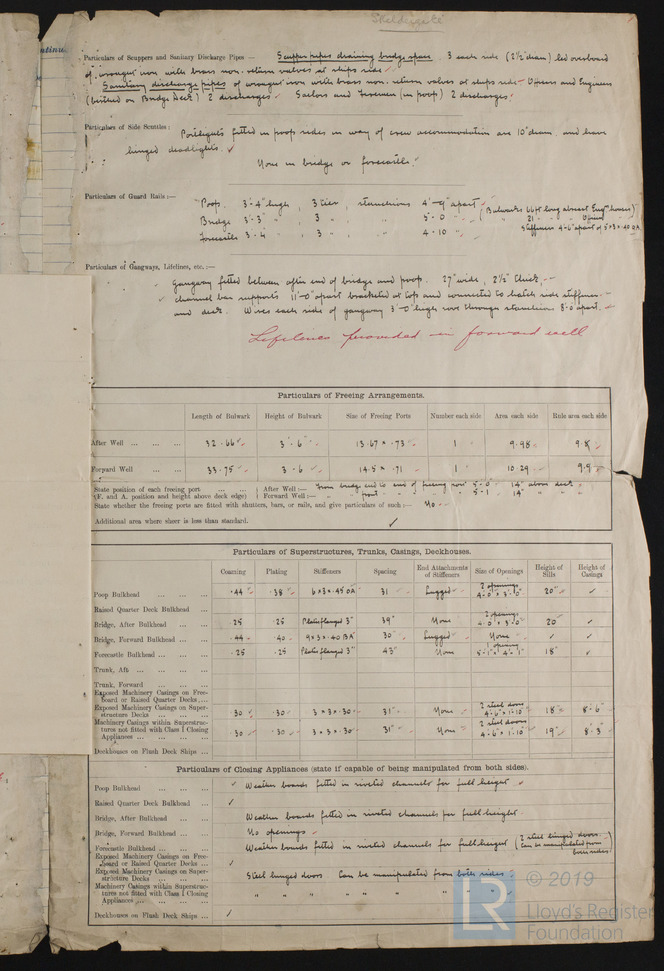 Skeldergate
ntinu
Particulars of Scuppers and Sanitary Discharge Pipes — Scupper pipes draining bridge space. 3 each side (2½" diam) led overboard
of wrought iron with brass non-return valves at ships side
Sanitary discharge pipes of wrought iron with brass non-return valves at ships side - Officers and Engineers
(berthed on Bridge Deck) 2 discharges. Sailors and Firemen (in poop) 2 discharges.
Particulars of Side Scuttles: Portlights fitted in poop sides in way of crew accommodation are 10" diam. and have
hinged deadlights.
None in bridge or forecastle.
Particulars of Guard Rails:— Poop. 3'-4" high, 3 tier, stanchions 4'-9" apart
Bridge 3'-3" " , 3 " , " 5'-0 " (Bulwarks 66ft long abreast Eng. houses)
21 " " Officers
Forecastle 3'-4 " , 3 " , " 4-10 " Stiffeners 4'-6" apart of 5"x3"x.40 OA
Particulars of Gangways, Lifelines, etc.:—
Gangway fitted between after end of bridge and poop. 27" wide, 2½" thick,
channel bar supports 11'-0" apart bracketed at top and connected to hatch side stiffener
and deck. Wires each side of gangway 3'-0" high rove through stanchions 8'-0 apart.
Lifelines provided in forward well
Particulars of Freeing Arrangements.
Length of Bulwark Height of Bulwark Size of Freeing Ports Number each side Area each side Rule area each side
After Well ... ... ... 32.66 3'-6" 13.67 x .73 1 9.98 9.8
Forward Well ... ... 33.75 3-6 14.5 x .71 1 10.29 9.9
State position of each freeing port ... ... ... After Well:— From bridge end to end of freeing port 5'-0" 14" above deck
(F. and A. position and height above deck edge) Forward Well:— " " " " " port " 5'-1" 14" " "
State whether the freeing ports are fitted with shutters, bars, or rails, and give particulars of such:— No
Additional area where sheer is less than standard. ✓
Particulars of Superstructures, Trunks, Casings, Deckhouses.
Coaming Plating Stiffeners Spacing End Attachments of Stiffeners Size of Openings Height of Sills Height of Casings
Poop Bulkhead ... ... ... .44 .38 6x3x.45 OA 31 Lugged 2 openings 4'-0" x 3'-0" 20" ✓
Raised Quarter Deck Bulkhead ...
Bridge, After Bulkhead ... ... .25 .25 Plate flanged 3" 39" None 2 openings 4'-0" x 3'-0" 20 ✓
Bridge, Forward Bulkhead ... ... .44 .40 9x3x.40 BA 30" Lugged None ✓ ✓
Forecastle Bulkhead ... ... ... .25 .25 Plate flanged 3" 43" None 1 opening 5'-1" x 4'-1" 18" ✓
Trunk, Aft ... ... ... ...
Trunk, Forward ... ... ...
Exposed Machinery Casings on Freeboard or Raised Quarter Decks ...
Exposed Machinery Casings on Superstructure Decks ... ... ... .30 .30 3x3x.30 31" None 2 steel doors 4'-6" x 1'-10" 18" 8'-6"
Machinery Casings within Superstructures not fitted with Class I Closing Appliances ... ... ... .30 .30 3x3x.30 31" None 2 steel doors 4'-6" x 1'-10" 19" 8'-3"
Deckhouses on Flush Deck Ships ...
Particulars of Closing Appliances (state if capable of being manipulated from both sides).
Poop Bulkhead ... ... ... ✓ Weather boards fitted in riveted channels for full height
Raised Quarter Deck Bulkhead ... ✓
Bridge, After Bulkhead ... ... Weather boards fitted in riveted channels for full height.
Bridge, Forward Bulkhead ... ... No openings
Forecastle Bulkhead ... ... ... Weather boards fitted in riveted channels for full height (2 steel hinged doors. Can be manipulated from both sides)
Exposed Machinery Casings on Freeboard or Raised Quarter Decks ... ✓
Exposed Machinery Casings on Superstructure Decks ... ... ... Steel hinged doors Can be manipulated from both sides.
Machinery Casings within Superstructures not fitted with Class I Closing Appliances ... ... ... " " " " " " " "
Deckhouses on Flush Deck Ships ... ✓
LR
© 2019
Lloyd's Register
Foundation